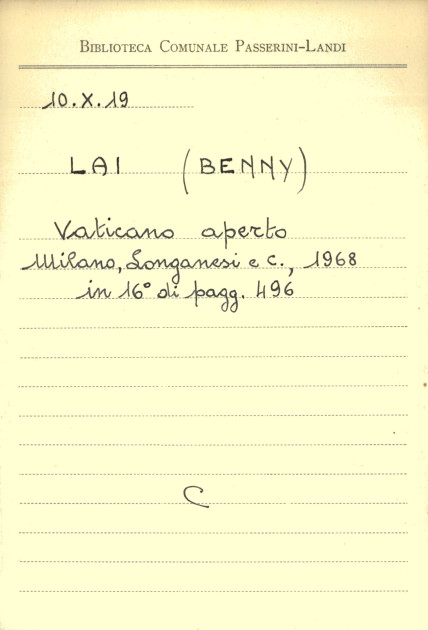 BIBLIOTECA COMUNALE PASSERINI-LANDI
10.X.19
LAI (BENNY)
Vaticano aperto
Milano, Longanesi e C., 1968
in 16° di pagg. 496
C